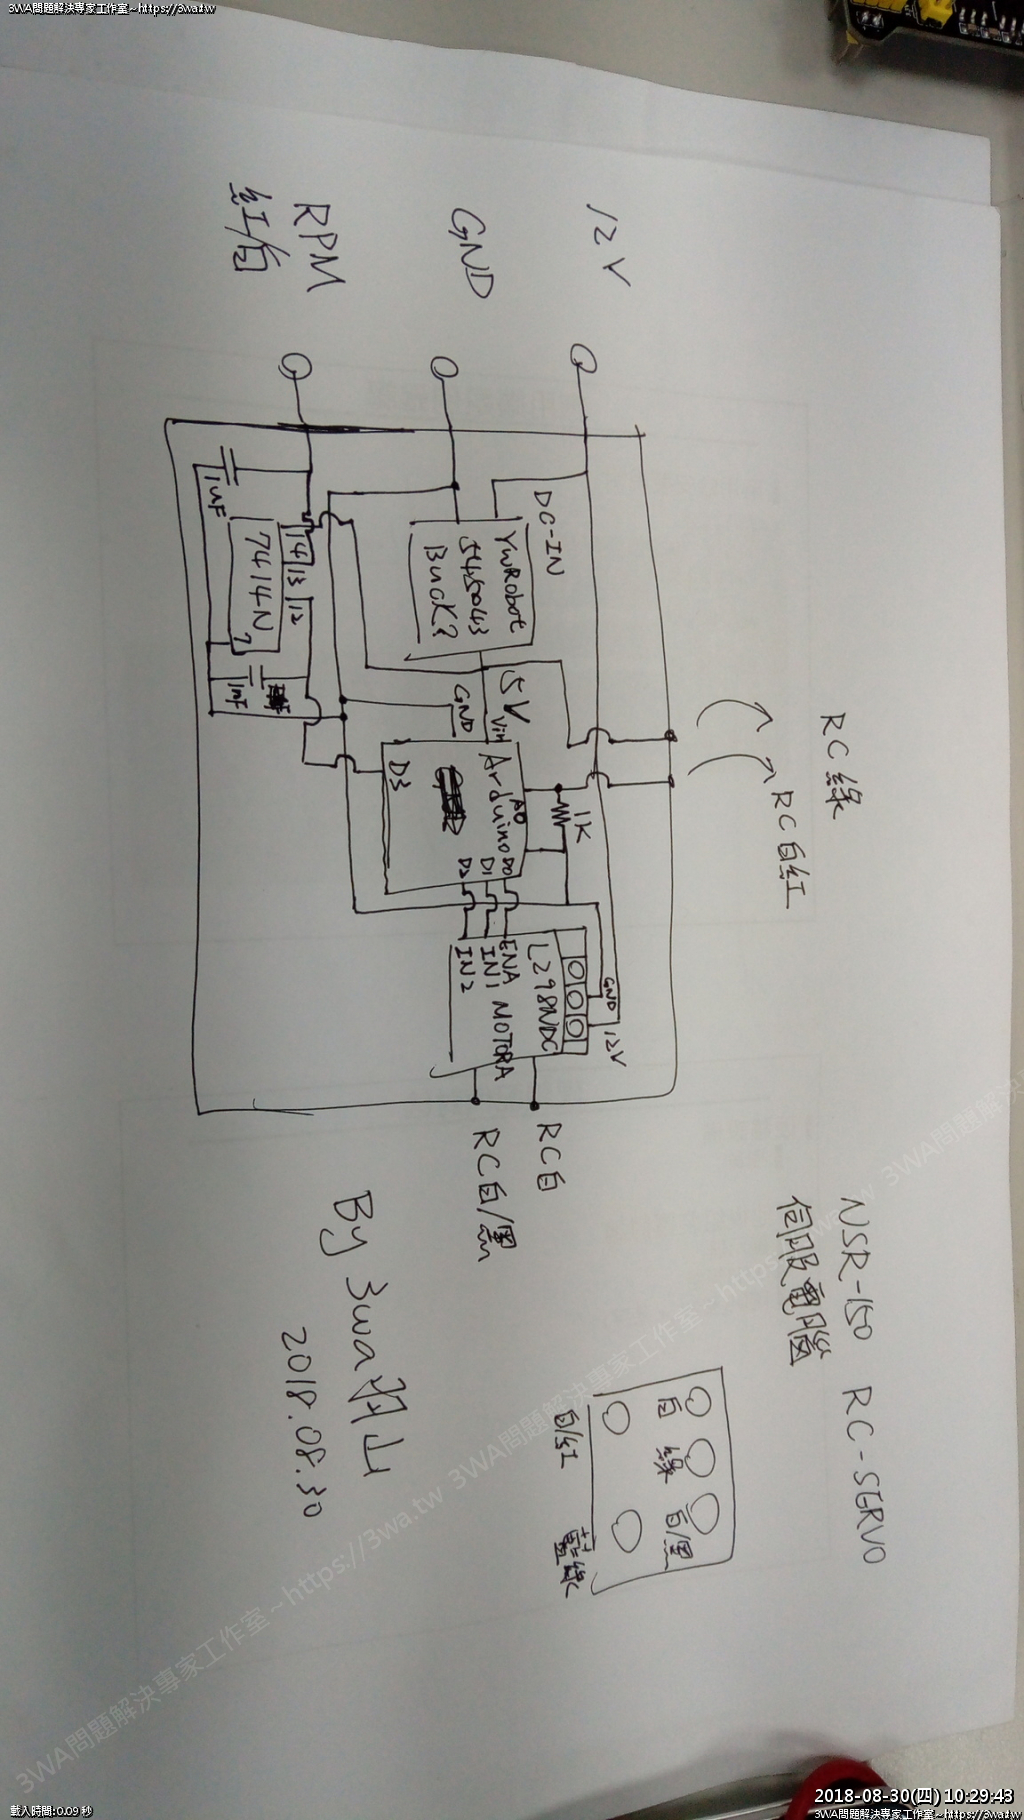 3WA問題解決專家工作室~https://3wa.tw
NSR-150 RC-SERVO
伺服電腦
RC綠
RC白紅
12V
GND
RPM
紅/白
DC-IN
YwRobot
545043
Buck?
5V
1uF
14 13 12
7414N
7
1nF
GND
Vin
Arduino
A0
D3
D0
D1
D2
1K
GND
12V
L298NDC
ENA
IN1
IN2
MOTORA
RC白
RC白/黑
白
綠
白/黑
白/紅
藍綠
By 3wa羽山
2018.08.30
3WA問題解決專家工作室~https://3wa.tw
載入時間:0.09 秒
2018-08-30(四) 10:29:43
3WA問題解決專家工作室~https://3wa.tw